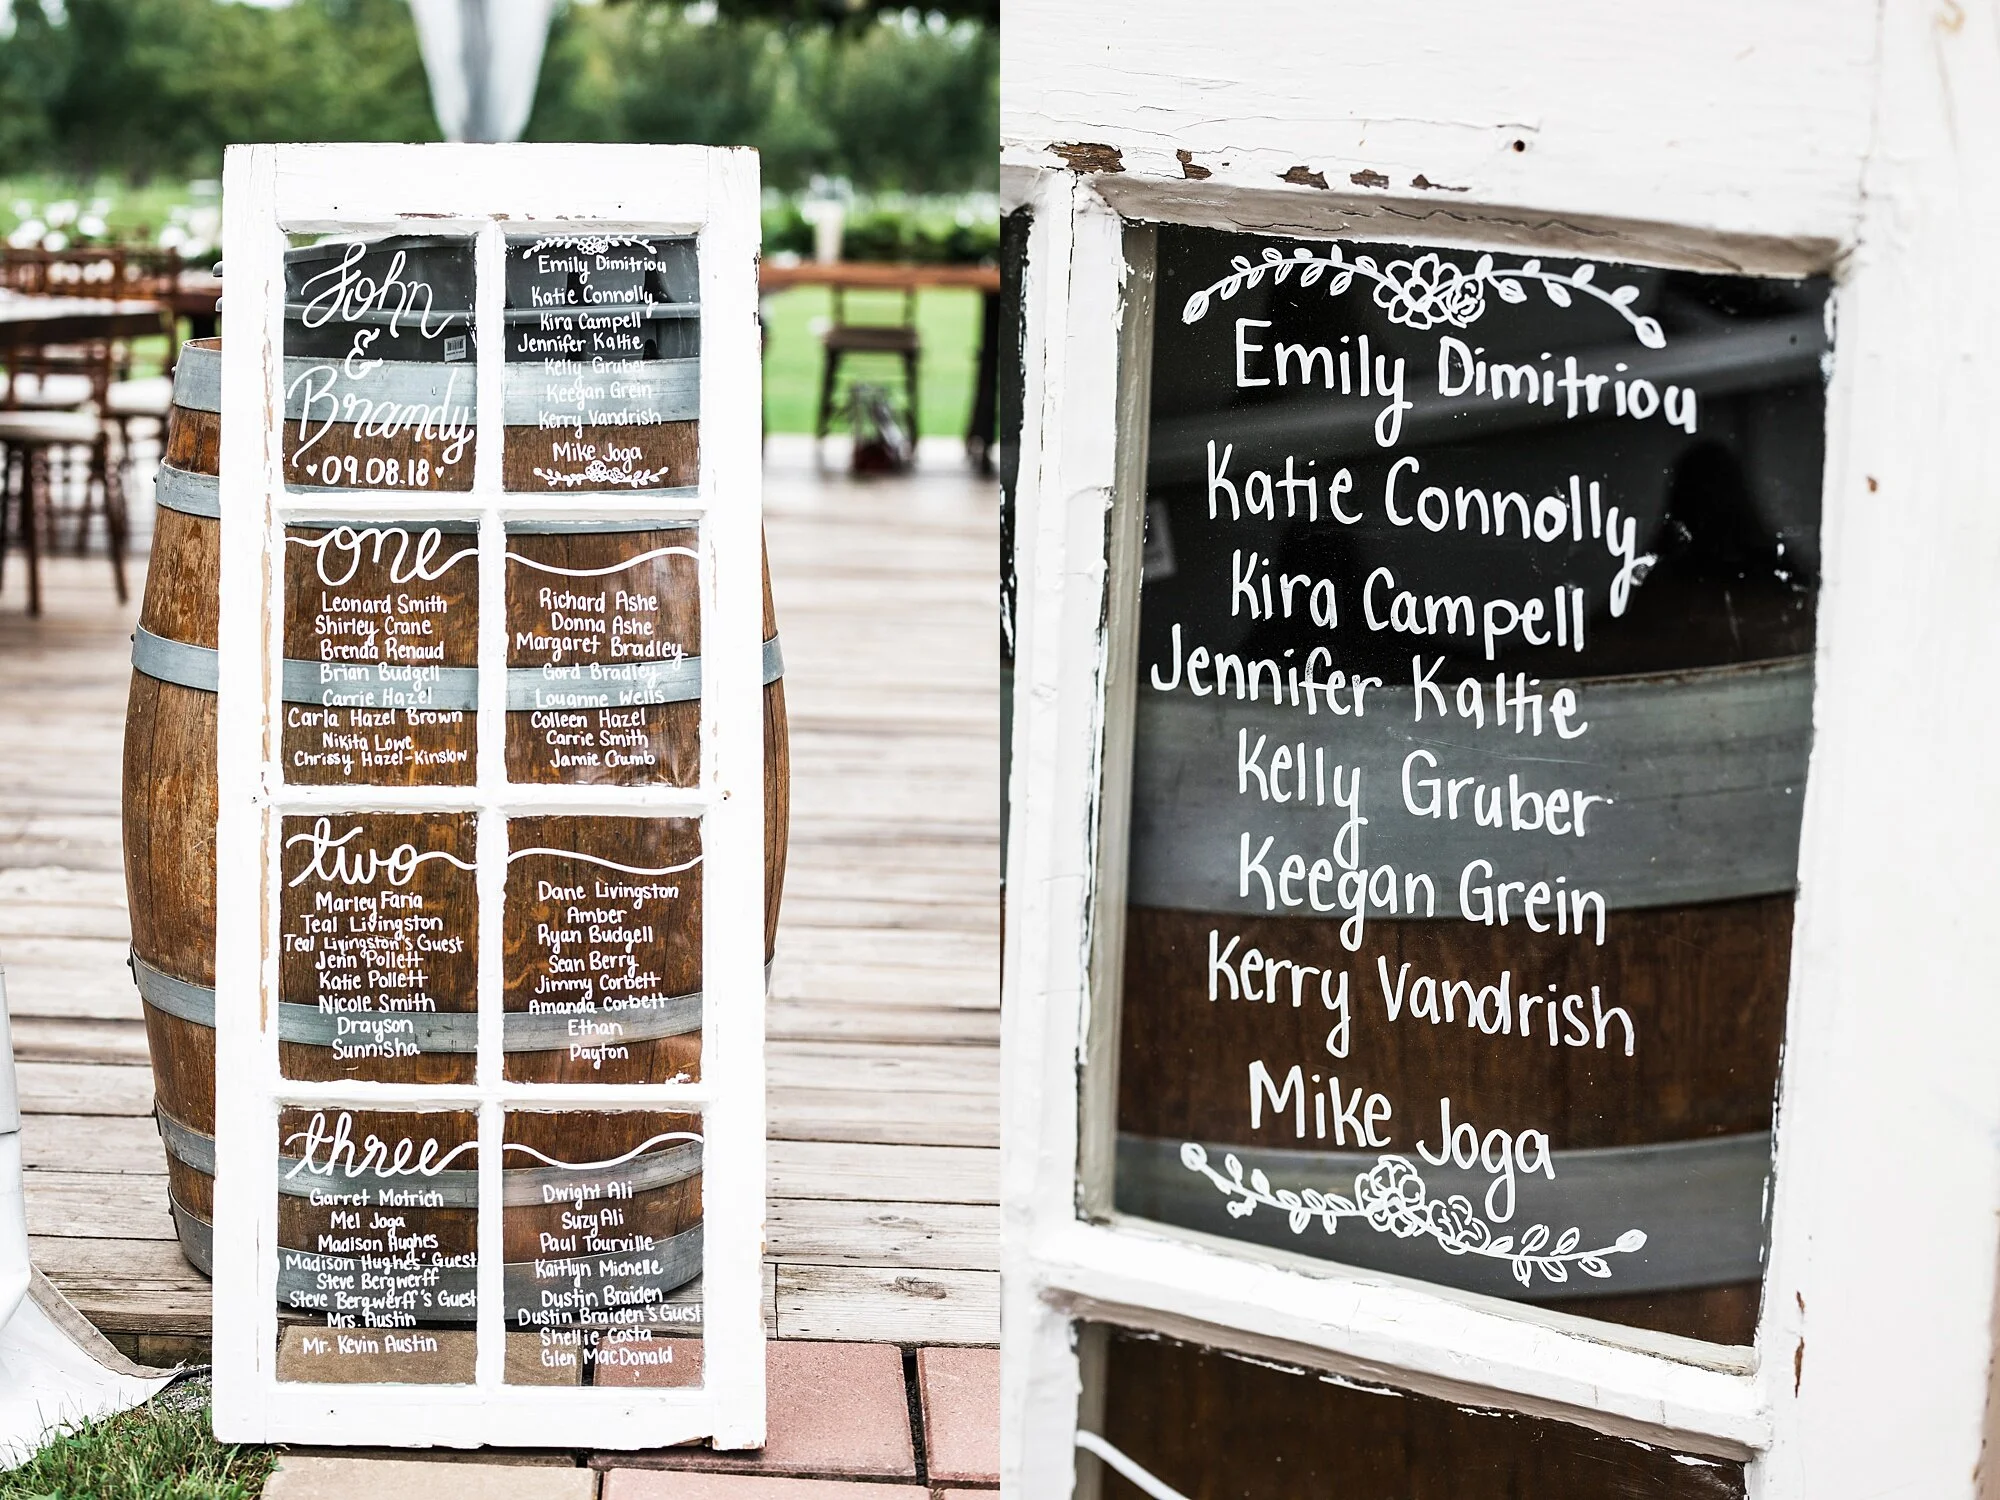 John
&
Brandy
09.08.18
Emily Dimitriou
Katie Connolly
Kira Campell
Jennifer Kaltie
Kelly Gruber
Keegan Grein
Kerry Vandrish
Mike Joga
one
Leonard Smith
Shirley Crane
Brenda Renaud
Brian Budgell
Carrie Hazel
Carla Hazel Brown
Nikita Lowe
Chrissy Hazel-Kinslow
Richard Ashe
Donna Ashe
Margaret Bradley
Gord Bradley
Louanne Wells
Colleen Hazel
Carrie Smith
Jamie Crumb
two
Marley Faria
Teal Livingston
Teal Livingston's Guest
Jenn Pollett
Katie Pollett
Nicole Smith
Drayson
Sunnisha
Dane Livingston
Amber
Ryan Budgell
Sean Berry
Jimmy Corbett
Amanda Corbett
Ethan
Payton
three
Garret Motrich
Mel Joga
Madison Hughes
Madison Hughes' Guest
Steve Bergwerff
Steve Bergwerff's Guest
Mrs. Austin
Mr. Kevin Austin
Dwight Ali
Suzy Ali
Paul Tourville
Kaitlyn Michelle
Dustin Braiden
Dustin Braiden's Guest
Shellie Costa
Glen MacDonald
Emily Dimitriou
Katie Connolly
Kira Campell
Jennifer Kaltie
Kelly Gruber
Keegan Grein
Kerry Vandrish
Mike Joga